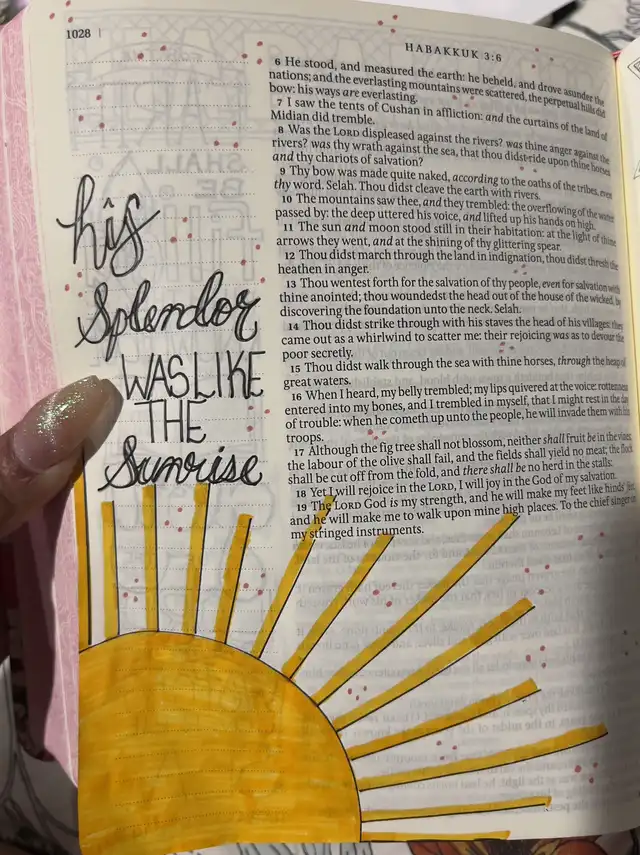 1028
HABAKKUK 3:6
his
Splendor
WAS LIKE
THE
Sunrise
6 He stood, and measured the earth: he beheld, and drove asunder the
nations; and the everlasting mountains were scattered, the perpetual hills did
bow: his ways are everlasting.
7 I saw the tents of Cushan in affliction: and the curtains of the land of
Midian did tremble.
8 Was the LORD displeased against the rivers? was thine anger against the
rivers? was thy wrath against the sea, that thou didst ride upon thine horses
and thy chariots of salvation?
9 Thy bow was made quite naked, according to the oaths of the tribes, even
thy word. Selah. Thou didst cleave the earth with rivers.
10 The mountains saw thee, and they trembled: the overflowing of the water
passed by: the deep uttered his voice, and lifted up his hands on high.
11 The sun and moon stood still in their habitation: at the light of thine
arrows they went, and at the shining of thy glittering spear.
12 Thou didst march through the land in indignation, thou didst thresh the
heathen in anger.
13 Thou wentest forth for the salvation of thy people, even for salvation with
thine anointed; thou woundedst the head out of the house of the wicked, by
discovering the foundation unto the neck. Selah.
14 Thou didst strike through with his staves the head of his villages: they
came out as a whirlwind to scatter me: their rejoicing was as to devour the
poor secretly.
15 Thou didst walk through the sea with thine horses, through the heap of
great waters.
16 When I heard, my belly trembled; my lips quivered at the voice: rottenness
entered into my bones, and I trembled in myself, that I might rest in the day
of trouble: when he cometh up unto the people, he will invade them with his
troops.
17 Although the fig tree shall not blossom, neither shall fruit be in the vines;
the labour of the olive shall fail, and the fields shall yield no meat; the flock
shall be cut off from the fold, and there shall be no herd in the stalls:
18 Yet I will rejoice in the LORD, I will joy in the God of my salvation.
19 The LORD God is my strength, and he will make my feet like hinds' feet,
and he will make me to walk upon mine high places. To the chief singer on
my stringed instruments.